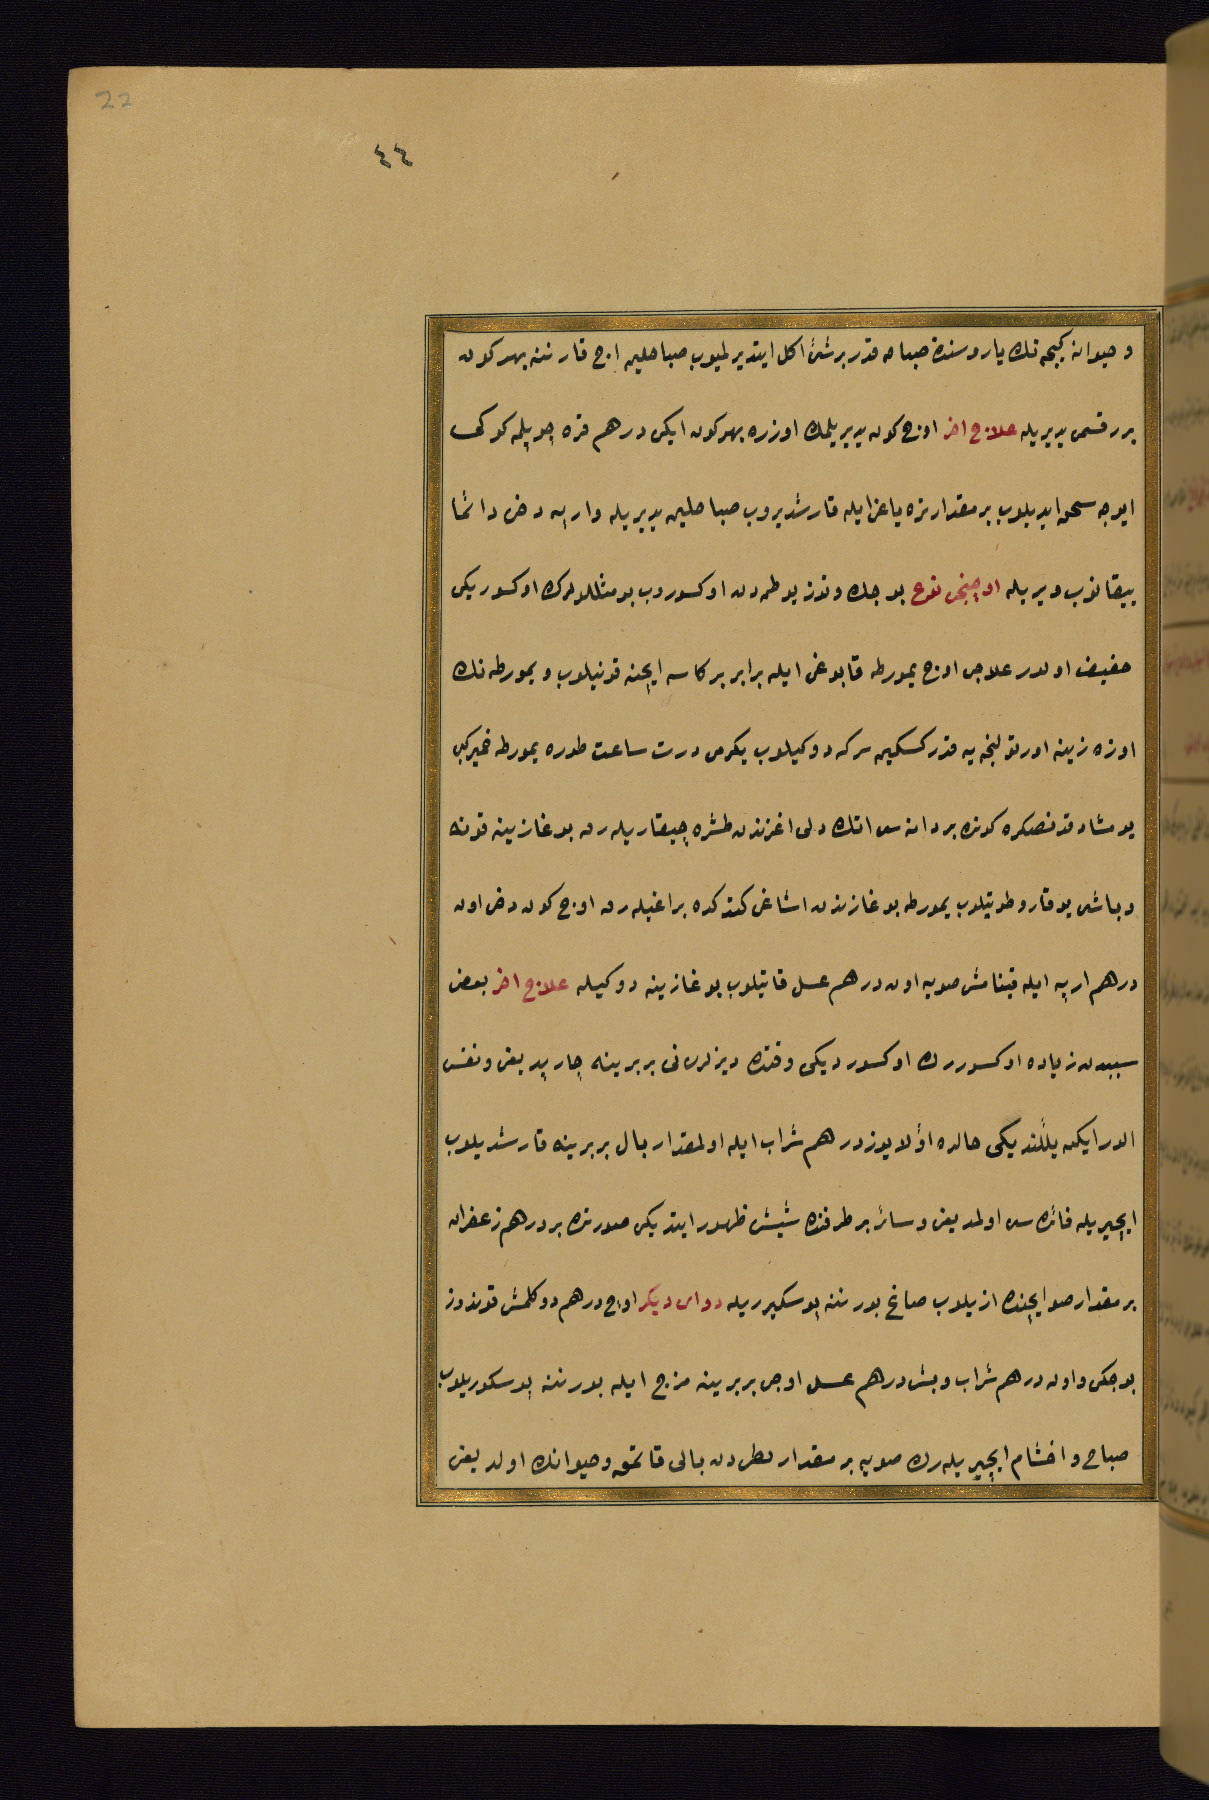 22
٤٤
و حیوانه کیجه نك یاروسنده صباحه قدر برشئ اکل ایتدیرلمیوب صباحلین اج قارننه بهر کون
برر قسمی یدیریله علاج اخر اوج کون یدیریلمك اوزره بهر کون ایکی درهم قره چوپلمه کوکی
ایوجه سحق ایدیلوب بر مقدار تره یاغی ایله قارشدیروب صباحلین یدیریله و ارپه دخی دائما
ییقانوب ویریله اوچنجی نوع بوجك و توز یوطمه دن اوکسوروب بو مثللولرك اوکسوریکی
خفیف اولدر علاجی اوج یمورطه قابوغی ایله برابر بر کاسه ایچنه قونیلوب و یمورطه نك
اوزه زینه اورتولنجه یه قدر کسکین سرکه دوکیلوب یکرمی درت ساعت طوره یمورطه خمیر کبی
یومشادقدنصکره کونده بر دانه سی اتك دلی اغزندن طشره چیقاریله رق بوغازینه قونه
و باشی یوقارو طوتیلوب یمورطه بوغازندن اشاغی کتدکده براغیله رق اوج کون دخی اون
درهم ارپه ایله قینامش صویه اون درهم عسل قاتیلوب بوغازینه دوکیله علاج اخر بعض
سببدن زیاده اوکسوررك اوکسوردیکی وقتده دیزلرینی بربرینه چارپدیغی و نفس
الورایکن یللندیکی حالده اوّلا یوز درهم شراب ایله اولمقدار بال بربرینه قارشدیلوب
ایچیریله فائده سی اولمدیغی و سائر بر طرفنده شیش ظهور ایتدیکی صورتده بر درهم زعفران
بر مقدار صو ایچنده ازیلوب صاغ بورننه پوسکیرریله دوای دیکر اوج درهم دوکلمش قوندوز
بوجکی و اون درهم شراب و بش درهم عسل اوچی بربرینه مزج ایله بورننه پوسکوریلوب
صباح و اخشام ایچیریله رك صویه بر مقدار بالی قاتمق و حیوانك اولدیغی